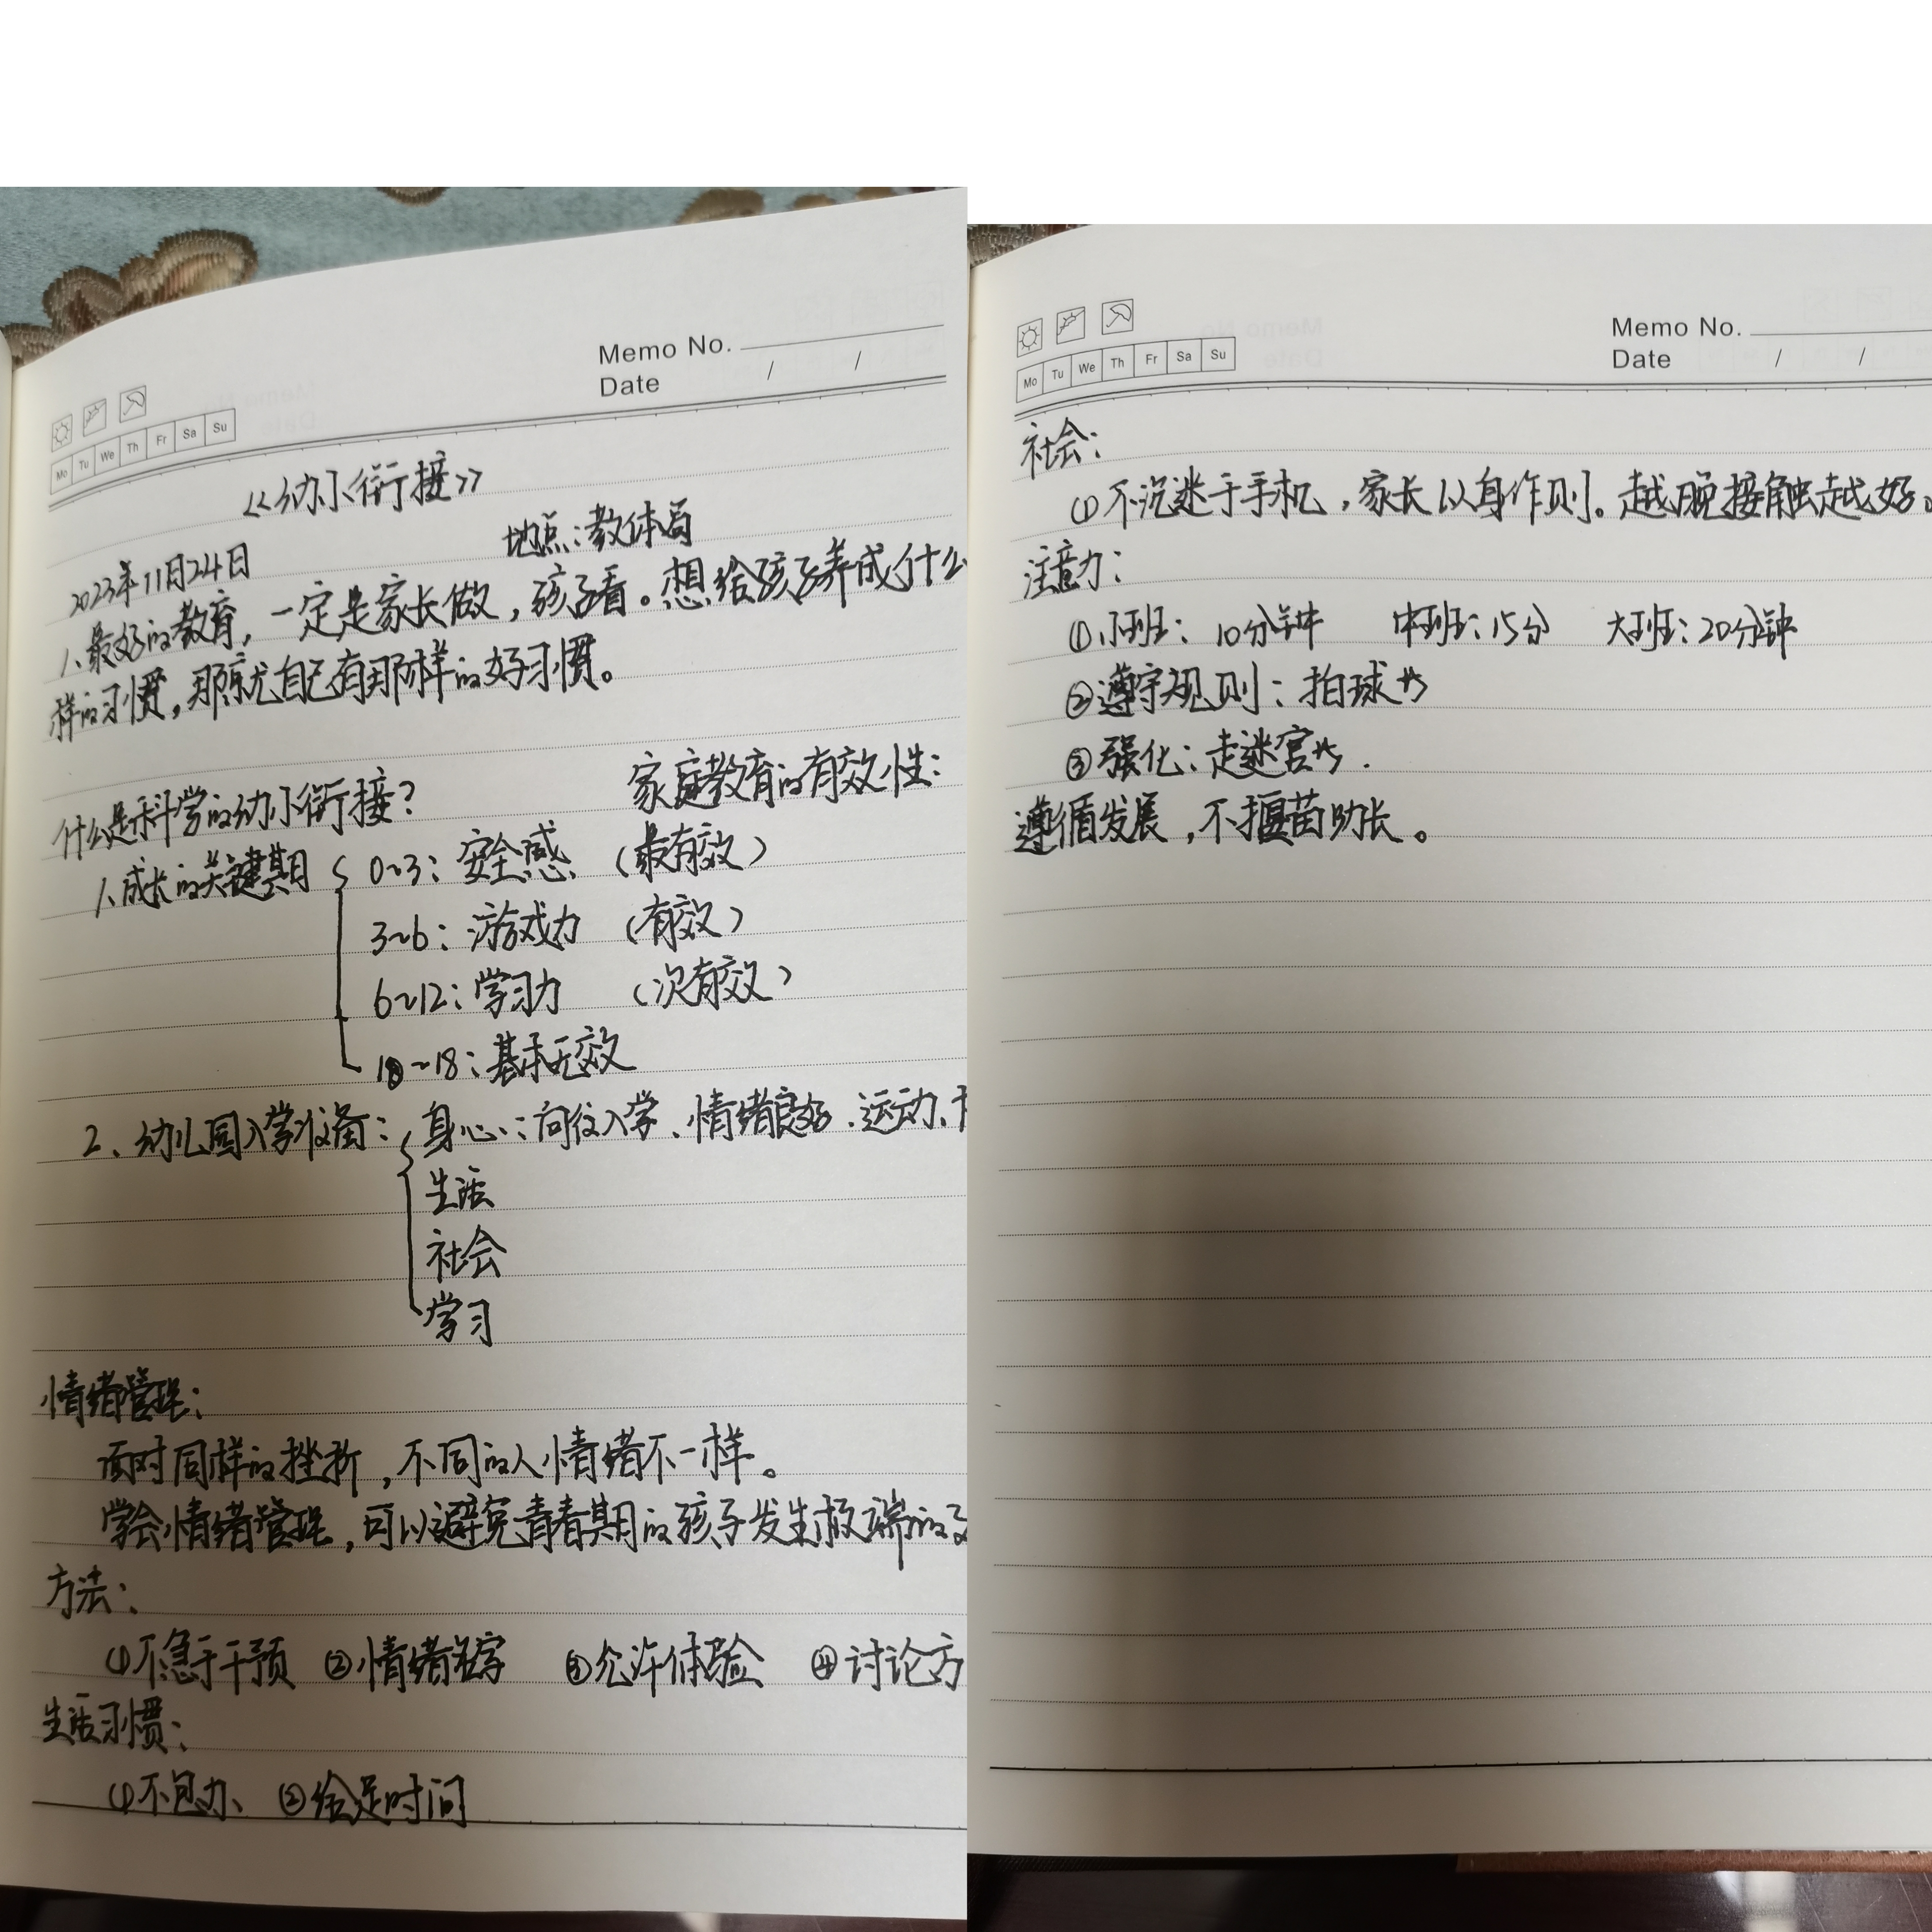 Memo No.
Date / /
Mo Tu We Th Fr Sa Su
《幼小衔接》
地点:教体局
2023年11月24日
1、最好的教育,一定是家长做,孩子看。想给孩子养成什么
样的习惯,那就自己有那样的好习惯。
家庭教育的有效性:
什么是科学的幼小衔接?
1、成长的关键期 0~3:安全感 (最有效)
3~6:游戏力 (有效)
6~12:学习力 (次有效)
18~18:基本无效
2、幼儿园入学准备:身心:向往入学、情绪良好、运动、
生活
社会
学习
情绪管理:
面对同样的挫折,不同的人情绪不一样。
学会情绪管理,可以避免青春期的孩子发生极端的
方法:
①不急于干预 ②情绪命名 ③允许体验 ④讨论方
生活习惯:
①不包办、 ②给足时间
Memo No.
Date / /
Mo Tu We Th Fr Sa Su
社会:
①不沉迷于手机,家长以身作则。越晚接触越好。
注意力:
①小班:10分钟 中班:15分 大班:20分钟
②遵守规则:拍球等
③强化:走迷宫等.
遵循发展,不揠苗助长。